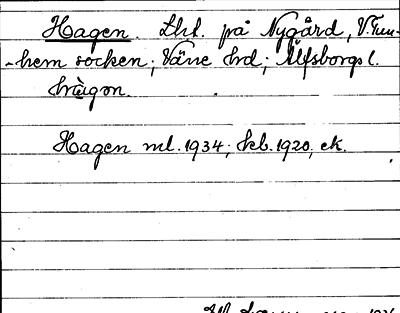 Hagen. Lht. på Nygård, V. Tun-
-hem socken; Väne hd; Älfsborgs l.
hàgɷn.
Hagen ml. 1934; kb. 1920, ek.